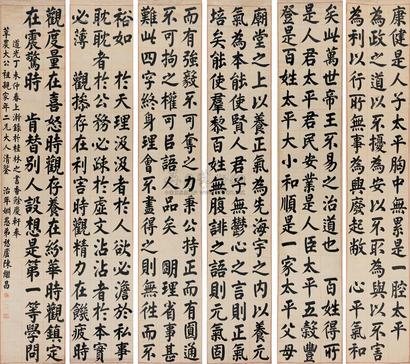 康健是人子太平胸中無累是一腔太平
為政之道以不擾為安以不取為與以不害
為利以行所無事為興廢起敝 心平氣和
矣此萬世帝王不易之治道也 百姓得所
是人君太平君民安業是人臣太平五穀豐
登是百姓太平大小和順是一家太平父母
廟堂之上以養正氣為先海宇之內以養元
氣為本能使賢人君子無鬱心之言則正氣
培矣能使群黎百姓無腹誹之語則元氣固
而有強毅不可奪之力秉公持正而有圓通
不可拘之權可以語人品矣 明理省事甚
難此四字終身理會不盡得之則無往而不
裕如 於天理汲汲者於人欲必澹於私事
耽耽者於公務必疎於虛文沾沾者於本實
必薄 觀操存在利害時觀精力在饑疲時
觀度量在喜怒時觀存養在紛華時觀鎮定
在震驚時 肯替別人設想是第一等學問
道光丁未仲春上澣錄於桂林之書香餘慶軒奉
草農大公祖親家年二兄大人清鑒 治年姻愚弟陳繼昌